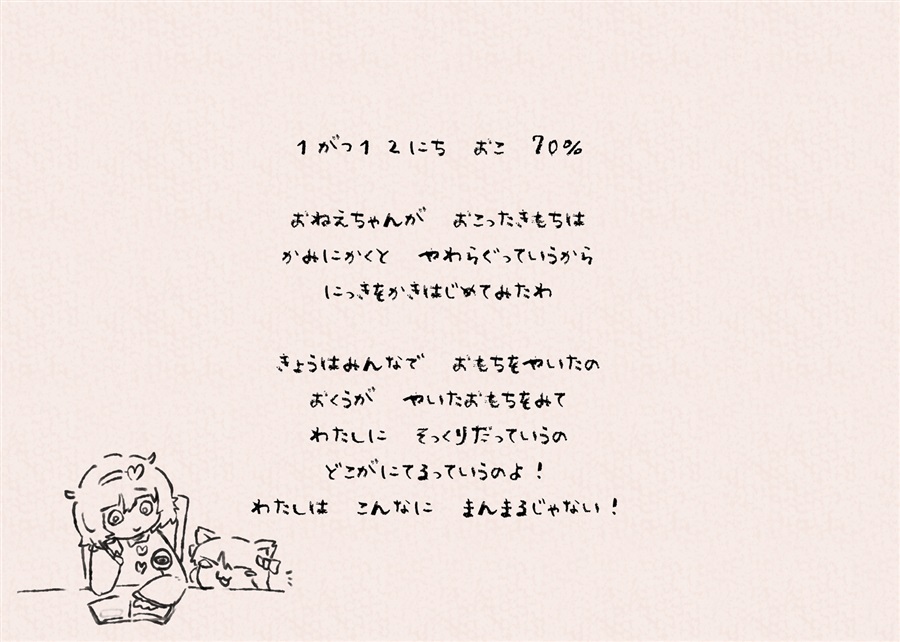 1がつ12にち おこ 70%
おねえちゃんが おこったきもちは
かみにかくと やわらぐっていうから
にっきをかきはじめてみたわ
きょうはみんなで おもちをやいたの
おくうが やいたおもちをみて
わたしに そっくりだっていうの
どこがにてるっていうのよ！
わたしは こんなに まんまるじゃない！